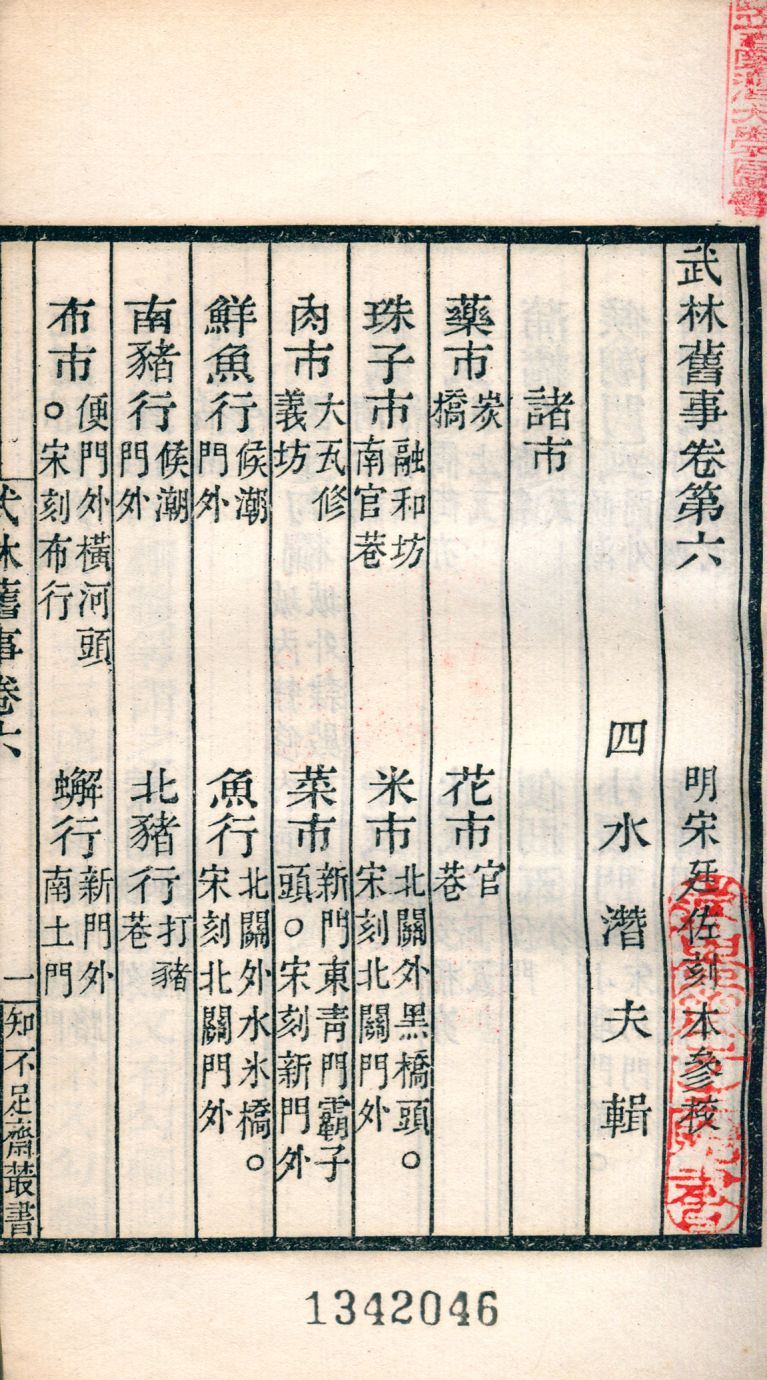 武林舊事卷第六 明宋廷佐刻本參校
四水潛夫輯
諸市
藥市炭橋 花市官巷
珠子市融和坊南官巷 米市北關外黑橋頭。宋刻北關門外
肉市大瓦修義坊 菜市新門東青門霸子頭。宋刻新門外
鮮魚行候潮門外 魚行北關外水氷橋。宋刻北關門外
南豬行候潮門外 北豬行打豬巷
布市便門外橫河頭。宋刻布行 蠏行新門外南土門
武林舊事卷六 一 知不足齋叢書
1342046